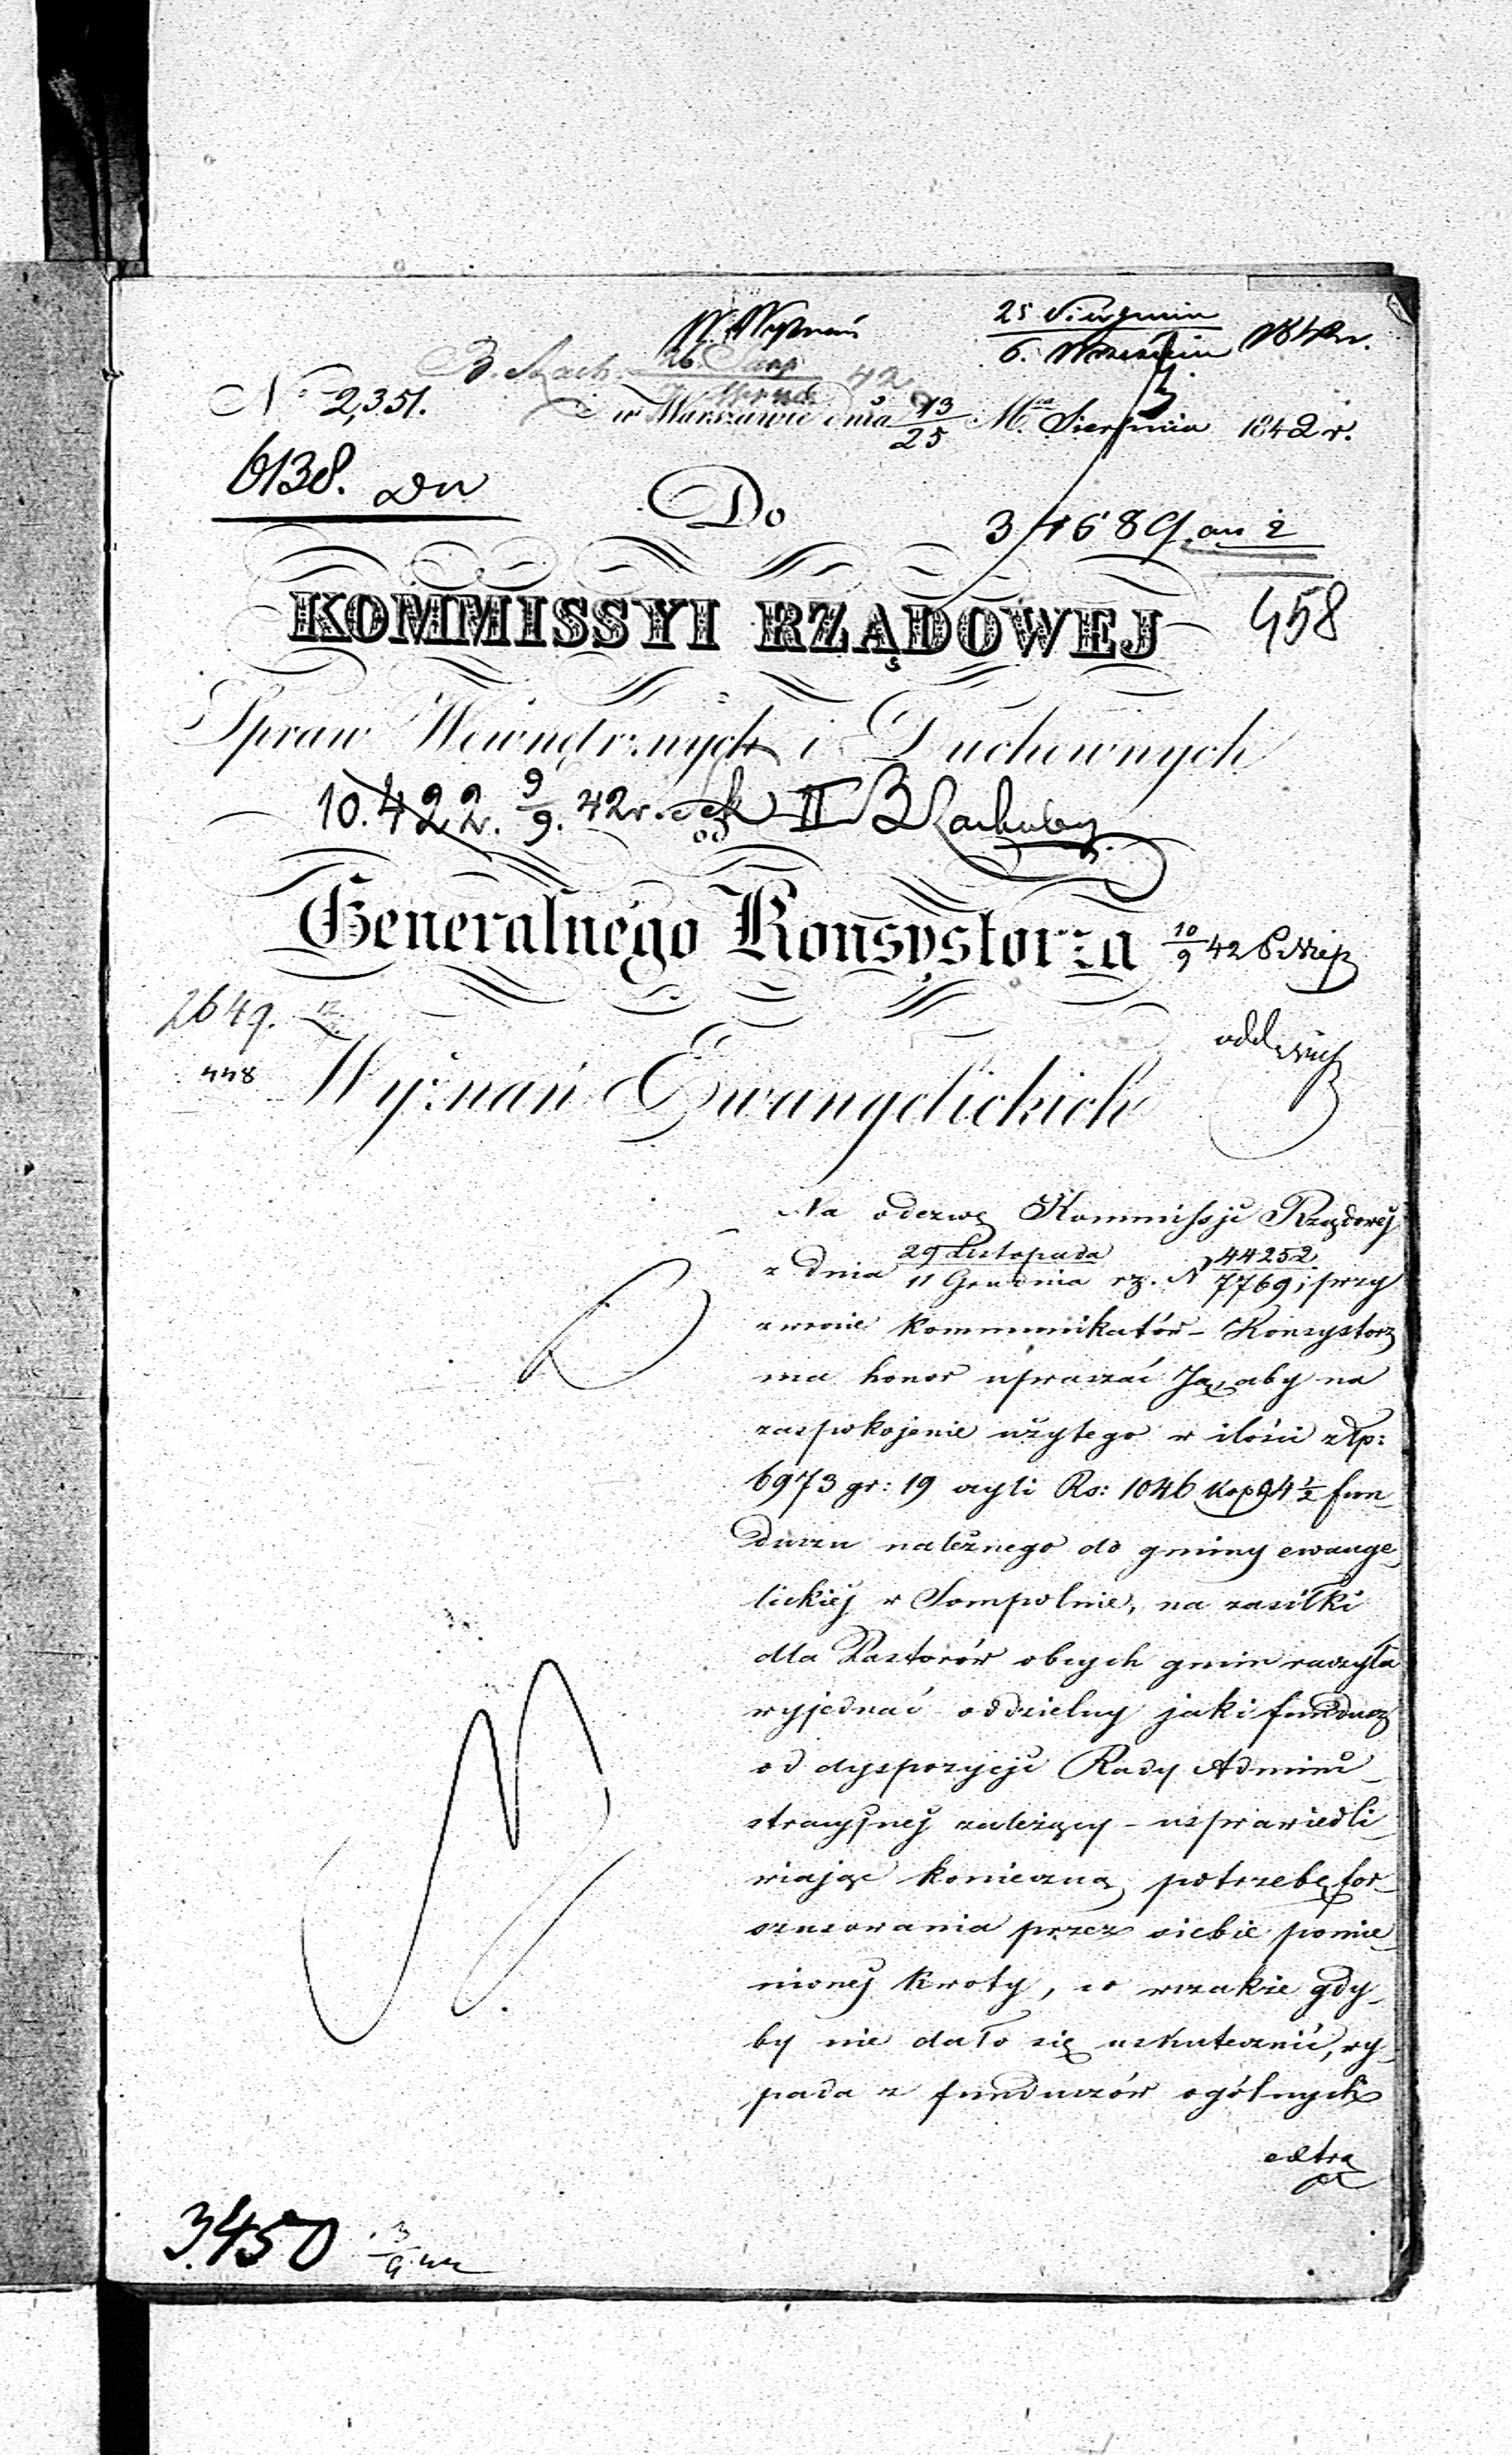 W. Wyznań
25 Sierpnia
6. Września 1842 r.
26 Sierp
42
N. 2,351.
w Warszawie dnia 13/25 M. Sierpnia 1842 r.
6138.
Do
34689
KOMMISSYI RZĄDOWEJ
458
Spraw Wewnętrznych i Duchownych
10.422. 9/9. 42 r. II B
Generalnego Konsystorza
10/9 42
2649.
448
Wyznań Ewangelickich
Na odezwę Kommissji Rządowéj
z dnia 29 Listopada / 11 Grudnia rz. N 44252/7769, przy
zwrocie kommunikatów – Konsystorz
ma honor upraszać Ją, aby na
zaspokojenie użytego w ilości złp:
6973 gr: 19 czyli Rs: 1046 kop 4½ fun-
duszu należnego do gminy ewange-
lickiéj w Sompolnie, na zasiłki
dla Pastorów obcych gmin raczyła
wyjednać oddzielny jaki fundusz
od dyspozycji Rady Admini-
stracyjnéj zależący – usprawiedli-
wiając konieczną potrzebę for-
szusowania przez siebie pomie-
nionéj kwoty, co wszakże gdy-
by nie dało się uskutecznić, wy-
pada z funduszów ogólnych
extra
3450
3/9